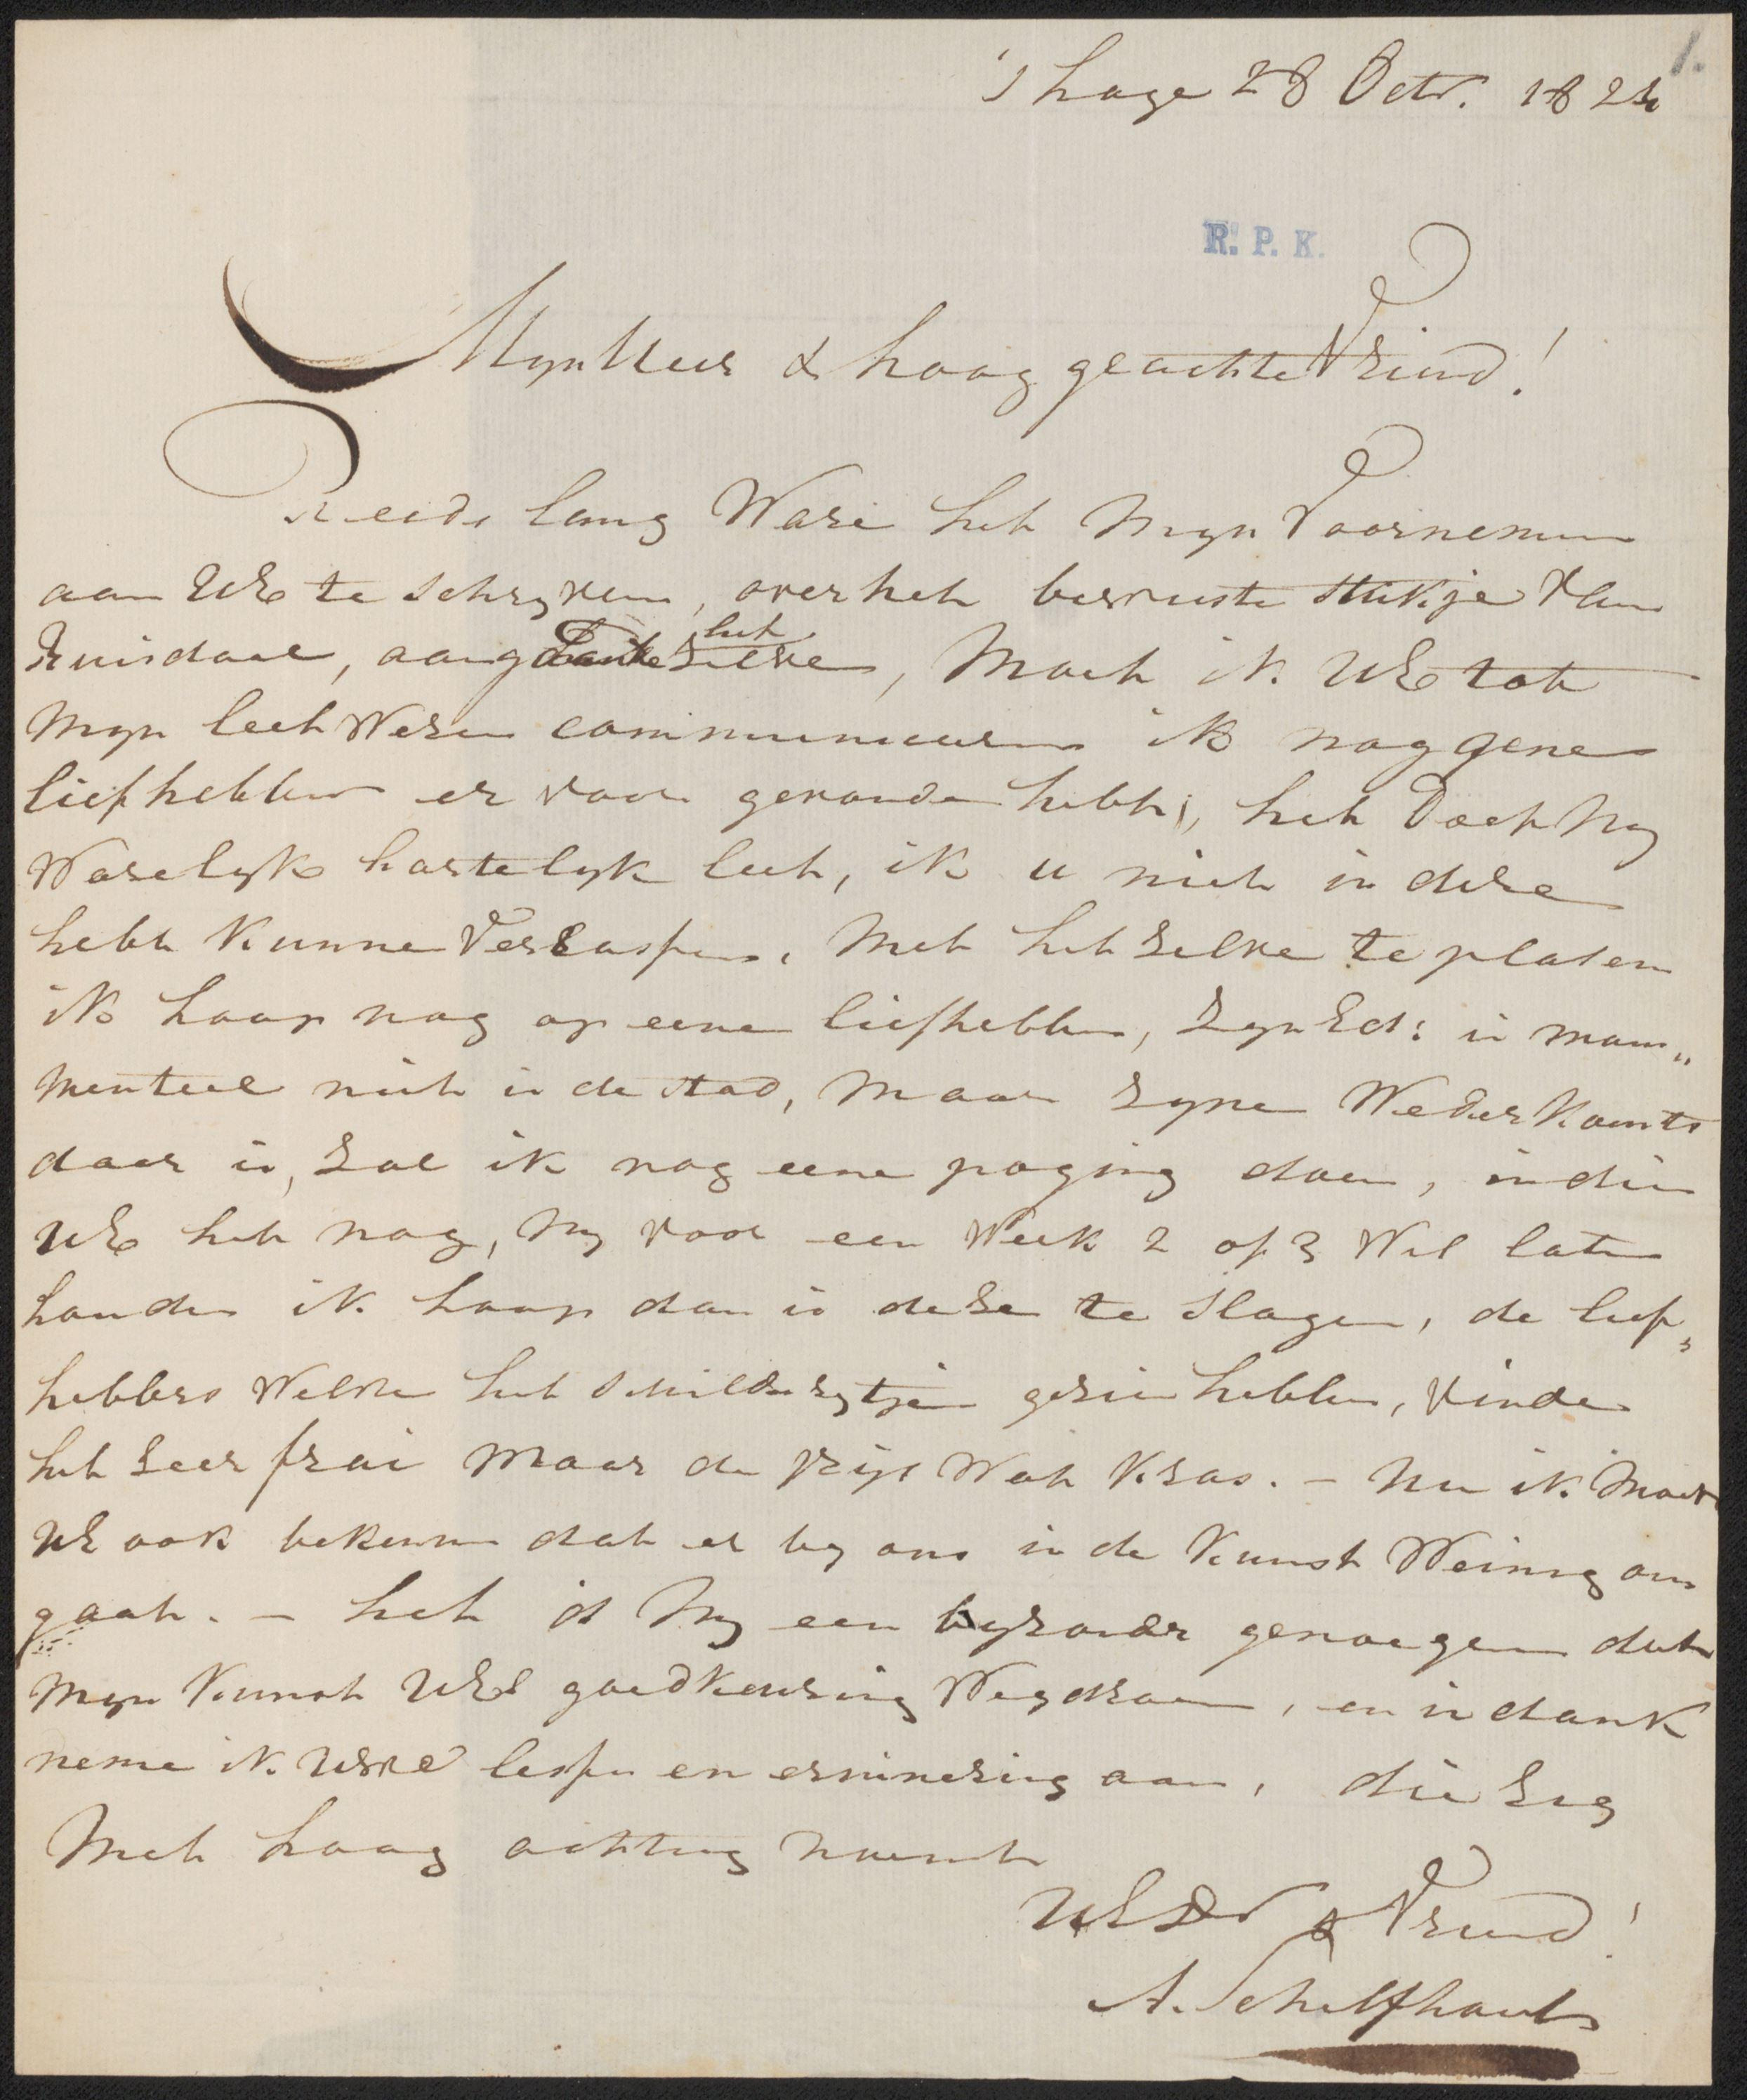 1.
's hage 28 Octr. 1824
R. P. K.
Myn Heer & hoog geachte Vriend!
Reeds lang Ware het Myn Voornemen
aan UE te schryven, over het bewuste stukje van
Ruisdael, aangaande het zelve, Moet ik UE tot
Myn leet Wesen communiceeren ik nog gene
liefhebber er voor gevonden hebt, het Doet My
Warelyk hartelyk leet, ik u niet in dese
hebt kunne Verrassen, Met het zelve te plasen
ik hoop nog op eene liefhebber, Zyn Ed: is mom„
menteel niet in de stad, Maar zyne Wederkomts
daar is, zal ik nog eene poging doen, indien
UE het nog, My voor een Week 2 of 3 Wil laten
houden ik hoop dan in dese te slagen, de lief„
hebbers Welke het schilderytje gesien hebben, vinden
het seer frai Maar de prijs Wat kras. – Nu ik Moet
UE ook bekennen dat er by ons in de Kunst Weinig om
gaat. – het is My een byzonder genoegen dat
Myn Kunst UEs goedkeuring Wegdraen, en in dank
neme ik lessen en erinnering aan, die zig
Met hoog achting noemt
UEDr & Vriend!
A. Schelfhout